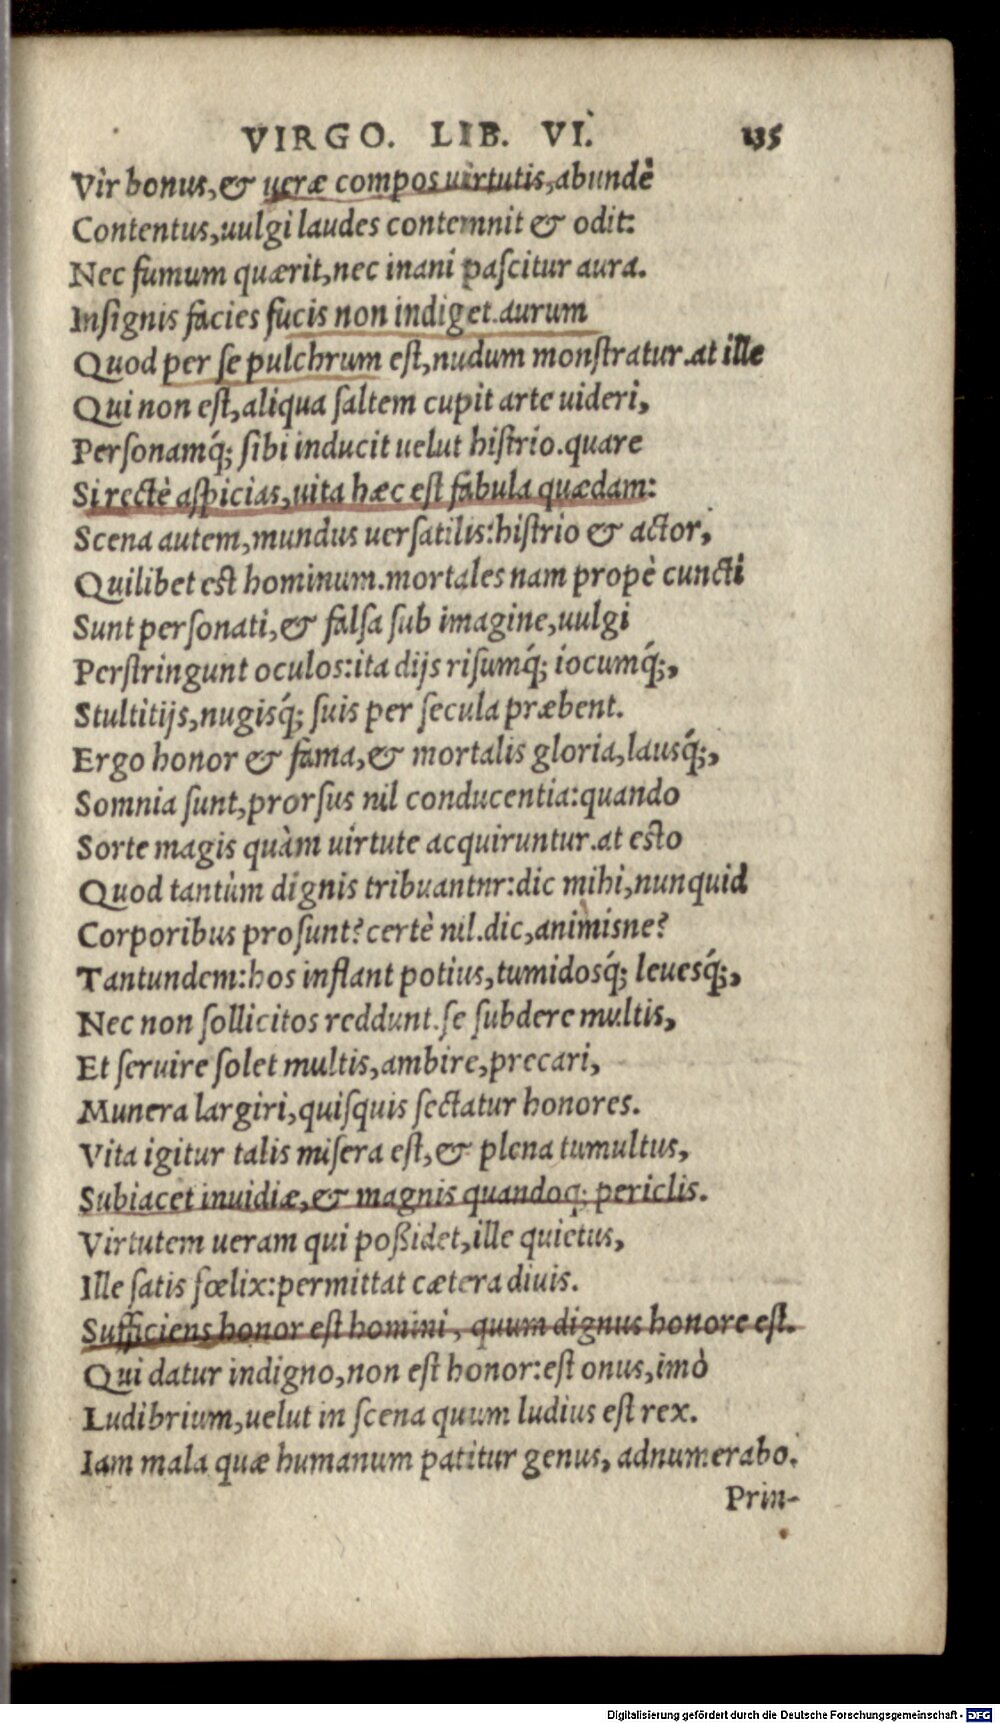 VIRGO. LIB. VI. 135
Vir bonus, & ueræ compos uirtutis, abundè
Contentus, uulgi laudes contemnit & odit:
Nec fumum quærit, nec inani paſcitur aura.
Inſignis facies fucis non indiget. aurum
Quod per ſe pulchrum eſt, nudum monſtratur. at ille
Qui non eſt, aliqua ſaltem cupit arte uideri,
Perſonamq́; ſibi inducit uelut hiſtrio. quare
Si rectè aſpicias, uita hæc eſt fabula quædam:
Scena autem, mundus uerſatilis: hiſtrio & actor,
Quilibet est hominum. mortales nam propè cuncti
Sunt perſonati, & falſa ſub imagine, uulgi
Perſtringunt oculos: ita dijs riſumq́; iocumq́;,
Stultitijs, nugisq́; ſuis per ſecula præbent.
Ergo honor & fama, & mortalis gloria, lausq́;,
Somnia ſunt, prorſus nil conducentia: quando
Sorte magis quàm uirtute acquiruntur. at esto
Quod tantùm dignis tribuantnr: dic mihi, nunquid
Corporibus proſunt? certè nil. dic, animisne?
Tantundem: hos inflant potius, tumidosq́; leuesq́;,
Nec non ſollicitos reddunt. ſe ſubdere multis,
Et ſeruire ſolet multis, ambire, precari,
Munera largiri, quiſquis ſectatur honores.
Vita igitur talis miſera eſt, & plena tumultus,
Subiacet inuidiæ, & magnis quandoq; periclis.
Virtutem ueram qui poßidet, ille quietus,
Ille ſatis fœlix: permittat cætera diuis.
Sufficiens honor eſt homini, quum dignus honore eſt.
Qui datur indigno, non eſt honor: eſt onus, imò
Ludibrium, uelut in ſcena quum ludius eſt rex.
Iam mala quæ humanum patitur genus, adnumerabo.
Prin-
Digitalisierung gefördert durch die Deutsche Forschungsgemeinschaft - DFG